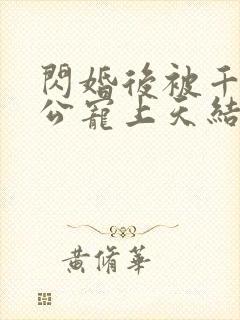 閃婚後被千
公寵上天結
黃脩華